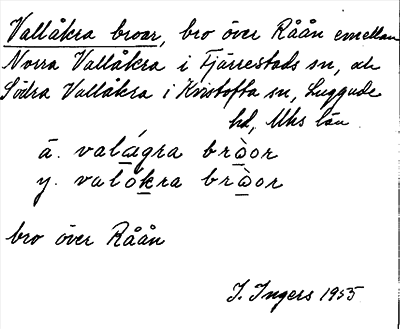 Vallåkra broar, bro över Råån emellan
Norra Vallåkra i Fjärrestads sn, och
Södra Vallåkra i Kvistofta sn, Luggude
hd, Mhs län
ä. valágra bròor
y. valòkra bràor
bro över Råån
I. Ingers 1955